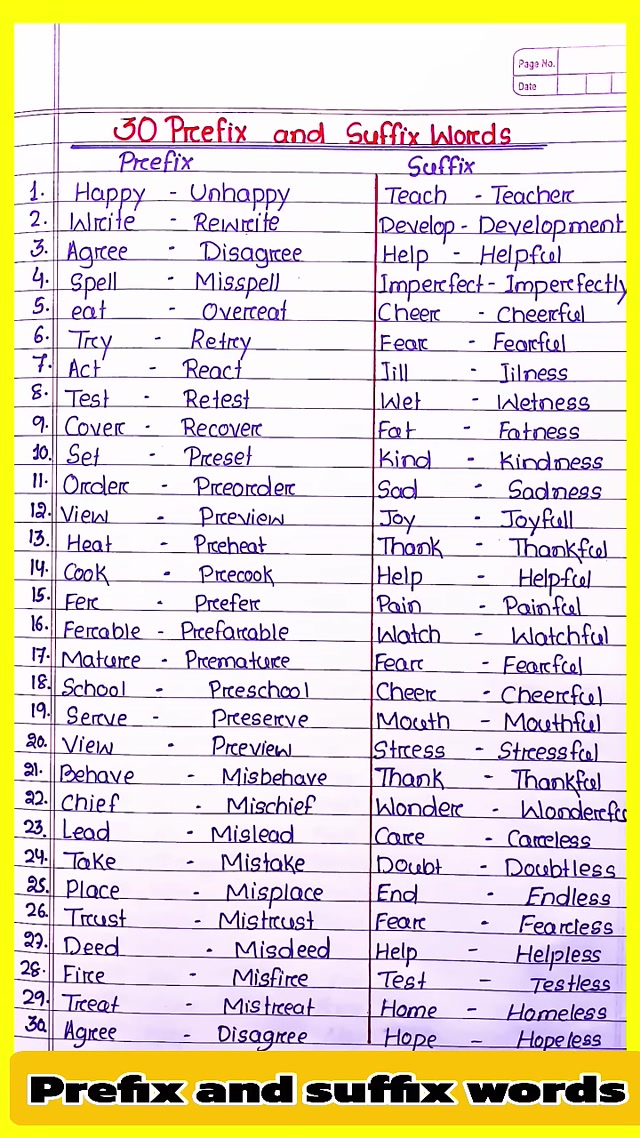 Page No.
Date
30 Prefix and Suffix Words
Prefix Suffix
1. Happy - Unhappy Teach - Teacher
2. Write - Rewrite Develop - Development
3. Agree - Disagree Help - Helpful
4. Spell - Misspell Imperfect - Imperfectly
5. eat - Overeat Cheer - Cheerful
6. Try - Retry Fear - Fearful
7. Act - React Jill - Jilness
8. Test - Retest Wet - Wetness
9. Cover - Recover Fat - Fatness
10. Set - Preset Kind - Kindness
11. Order - Preorder Sad - Sadness
12. View - Preview Joy - Joyfull
13. Heat - Preheat Thank - Thankful
14. Cook - Precook Help - Helpful
15. Fer - Prefer Pain - Painful
16. Ferable - Prefarable Watch - Watchful
17. Mature - Premature Fear - Fearful
18. School - Preschool Cheer - Cheerful
19. Serve - Preserve Mouth - Mouthful
20. View - Preview Stress - Stressful
21. Behave - Misbehave Thank - Thankful
22. Chief - Mischief Wonder - Wonderfu
23. Lead - Mislead Care - Careless
24. Take - Mistake Doubt - Doubtless
25. Place - Misplace End - Endless
26. Trust - Mistrust Fear - Fearless
27. Deed - Misdeed Help - Helpless
28. Fire - Misfire Test - Testless
29. Treat - Mistreat Home - Homeless
30. Agree - Disagree Hope - Hopeless
Prefix and suffix words